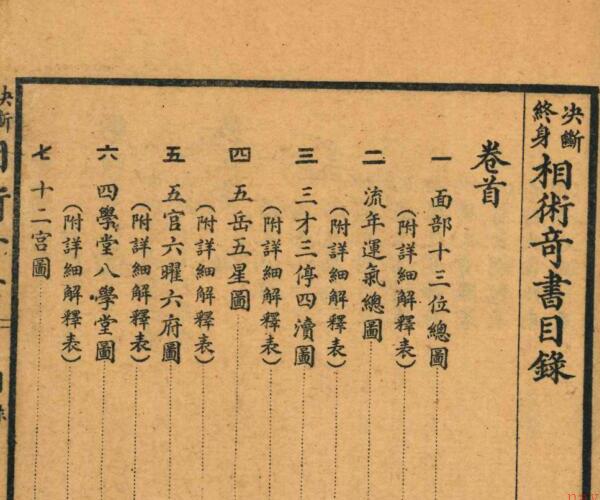 決斷終身相術奇書目錄
卷首
一 面部十三位總圖
(附詳細解釋表)
二 流年運氣總圖
(附詳細解釋表)
三 三才三停四瀆圖
(附詳細解釋表)
四 五岳五星圖
(附詳細解釋表)
五 五官六曜六府圖
(附詳細解釋表)
六 四學堂八學堂圖
(附詳細解釋表)
七 十二宮圖
決斷